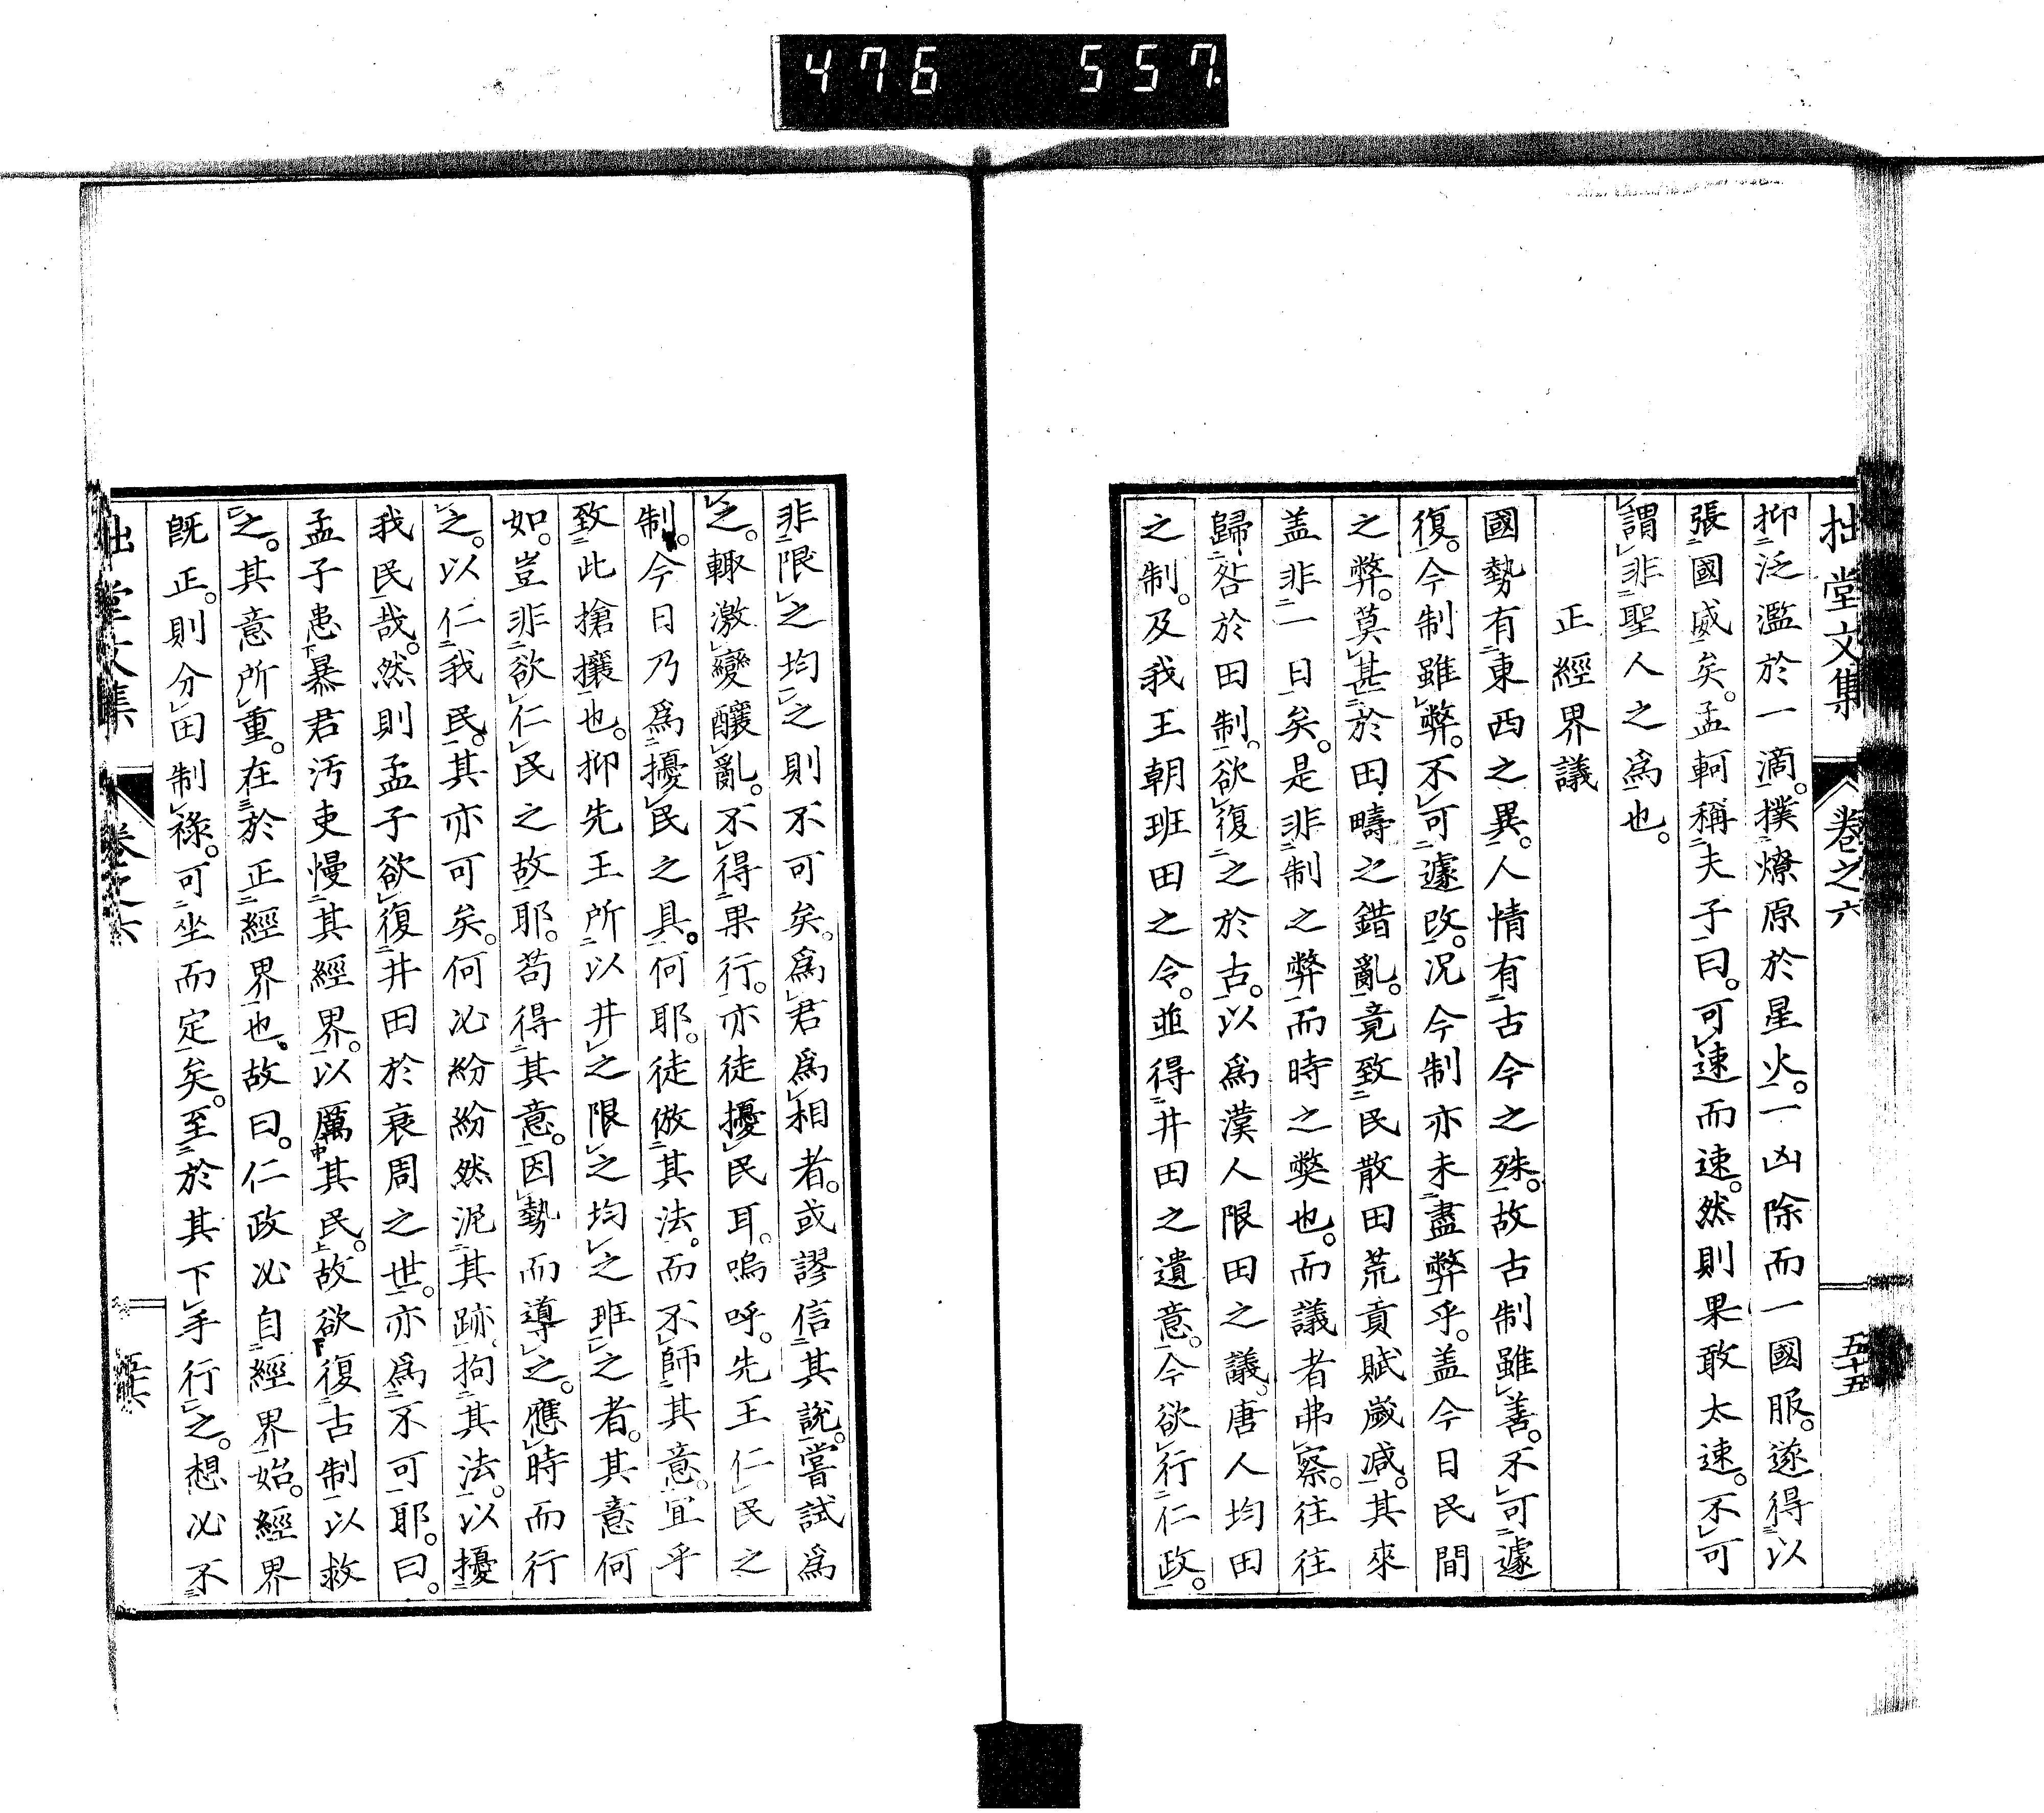 476 557
拙堂文集 卷之六 五十五
抑泛濫於一滴。撲燎原於星火。一凶除而一國服。遂得以
張國威矣。孟軻稱夫子曰。可速而速。然則果敢太速。不可
謂非聖人之爲也。
正經界議
國勢有東西之異。人情有古今之殊。故古制雖善。不可遽
復。今制雖弊。不可遽改。况今制亦未盡弊乎。盖今日民間
之弊。莫甚於田疇之錯亂。竟致民散田荒貢賦歲减。其來
盖非一日矣。是非制之弊而時之獘也。而議者弗察。往往
歸咎於田制。欲復之於古。以爲漢人限田之議。唐人均田
之制。及我王朝班田之令。並得井田之遺意。今欲行仁政。
非限之均之則不可矣。爲君爲相者。或謬信其說。嘗試爲
之。輙激變釀亂。不得果行。亦徒擾民耳。嗚呼。先王仁民之
制。今日乃爲擾民之具。何耶。徒倣其法。而不師其意。宜乎
致此搶攘也。抑先王所以井之限之均之班之者。其意何
如。豈非欲仁民之故耶。苟得其意。因勢而導之。應時而行
之。以仁我民。其亦可矣。何必紛紛然泥其跡。拘其法。以擾
我民哉。然則孟子欲復井田於衰周之世。亦爲不可耶。曰。
孟子患暴君汚吏慢其經界。以厲其民。故欲復古制以救
之。其意所重。在於正經界也。故曰。仁政必自經界始。經界
旣正。則分田制祿。可坐而定矣。至於其下手行之。想必不
拙堂文集 卷之六